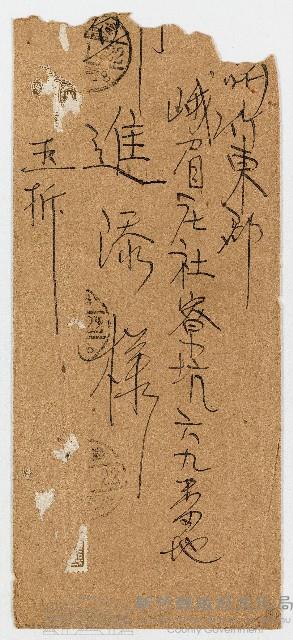 州竹東郡
峨眉庄社寮坑六九番地
進添様
玉折
County Government